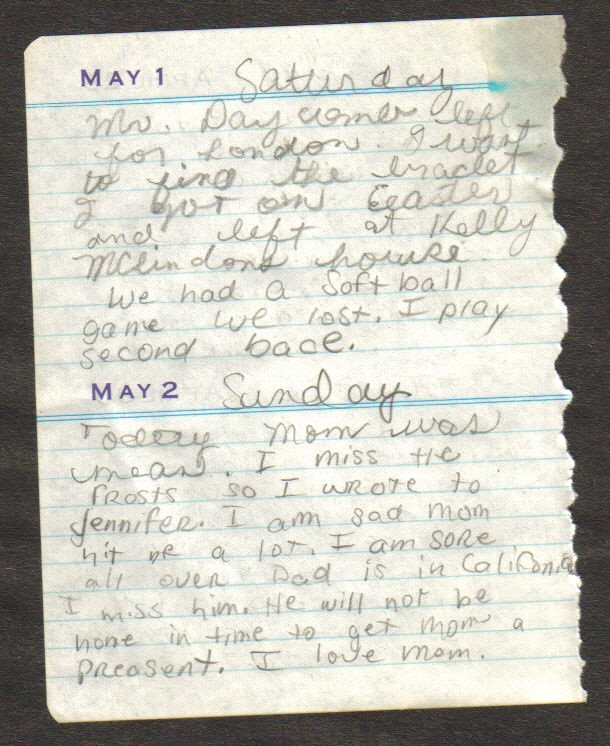 MAY 1 Saturday
Mr. Daycomer left
for London. I want
to find the braclet
I got on Eeaster
and left at Kelly
McLindons house.
We had a Softball
game we lost. I play
second bace.
MAY 2 Sunday
Today Mom was
mean. I miss the
Frosts so I wrote to
Jennifer. I am sad mom
hit me a lot. I am sore
all over Dad is in California
I miss him. He will not be
home in time to get mom a
preasent. I love mom.